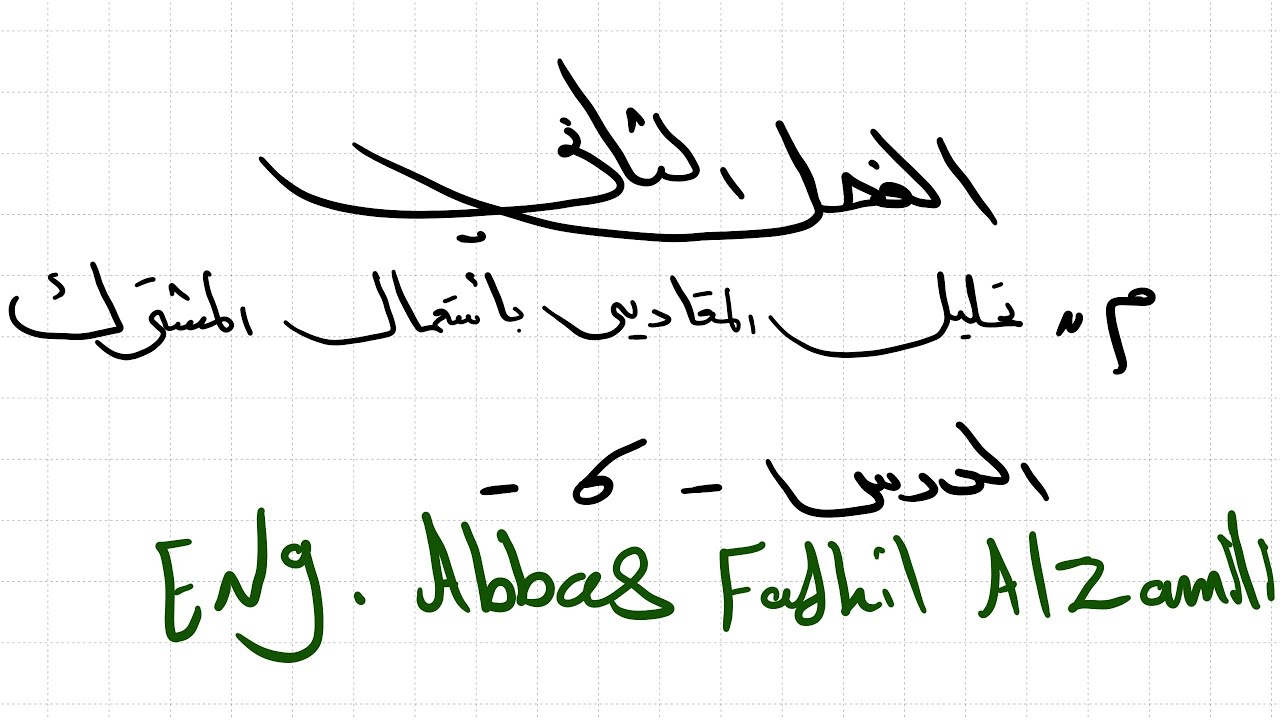 الفصل الثاني
م // تحليل المقادير باستعمال المشترك
الدرس - 6 -
Eng. Abbas Fadhil Alzamili